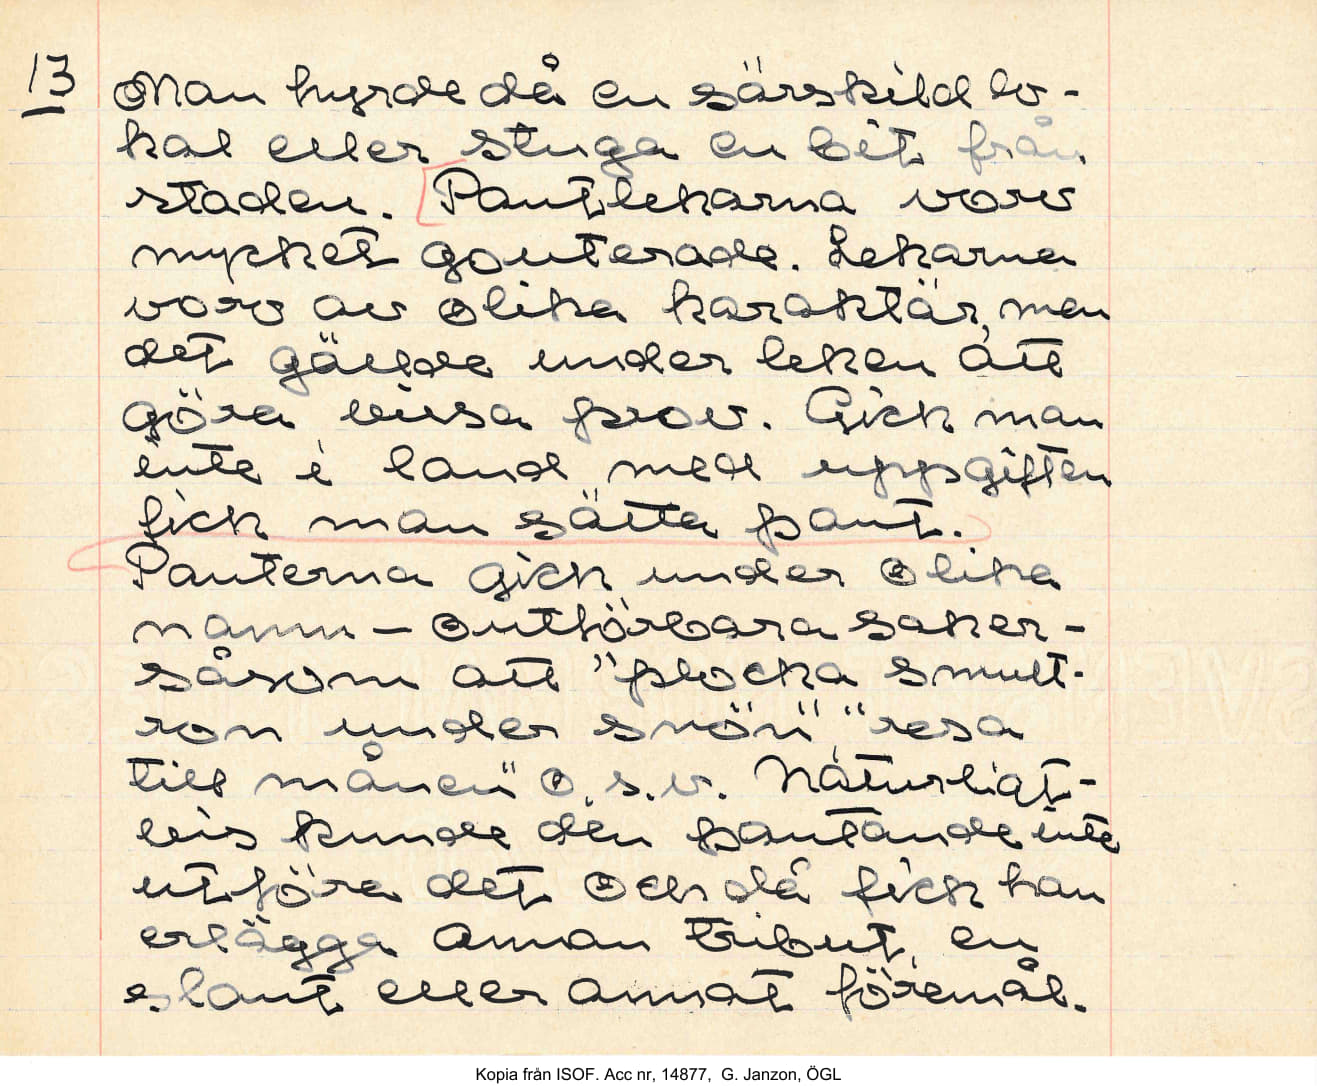 13
Man hyrde då en särskild lo-
kal eller stuga en bit från
staden. Pantlekarna voro
mycket gouterade. Lekarna
voro av olika karaktär, men
det gällde under leken att
göra vissa prov. Gick man
inte i land med uppgiften
fick man sätta pant.
Panterna gick under olika
namn – outförbara saker -
såsom att "plocka smult-
ron under snön", "resa
till månen" o.s.v. Naturligt-
vis kunde den pantande inte
utföra det och då fick han
erlägga annan tribut, en
slant eller annat föremål.
Kopia från ISOF. Acc nr, 14877, G. Janzon, ÖGL